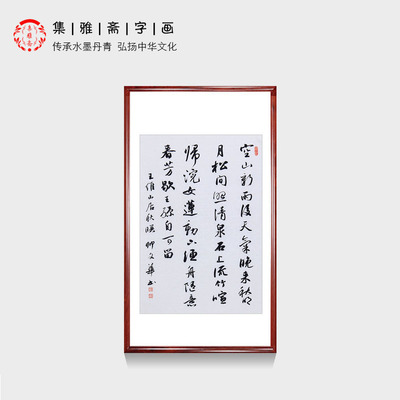 集|雅|斋|字|画
传承水墨丹青 弘扬中华文化
空山新雨後天氣晚来秋明
月松间照清泉石上流竹喧
帰浣女蓮動下渔舟随意
春芳歇王孫自可留
王维山居秋暝 柳文華书